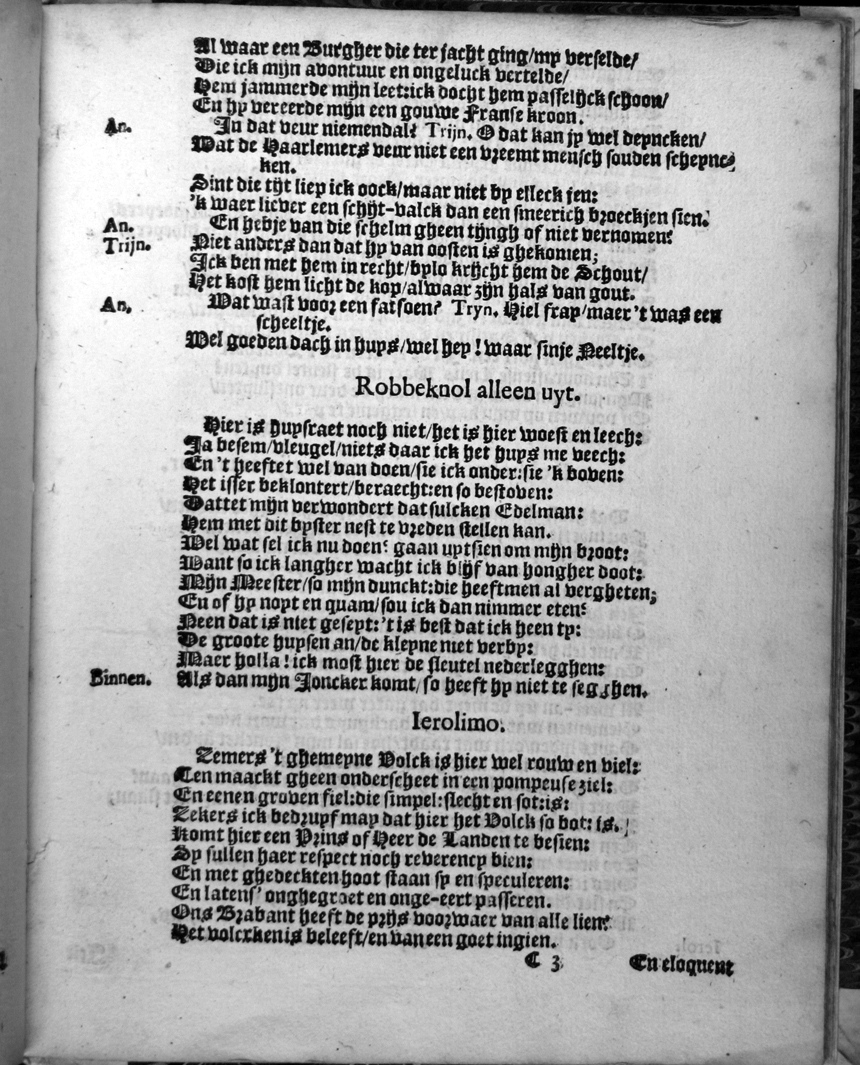 Al waar een Burgher die ter jacht ging/my verselde/
Die ick mijn avontuur en ongeluck vertelde/
Hem jammerde mijn leet:ick docht hem passelijck schoon/
En hy vereerde mijn een gouwe Franse kroon.
An. In dat veur niemendal? Trijn. O dat kan jy wel deyncken/
Wat de Haarlemers veur niet een vreemt mensch souden scheync-
ken.
Sint die tijt liep ick oock/maar niet by elleck jen:
'k waer liever een schijt-valck dan een smeerich broeckjen sien.
An. En hebje van die schelm gheen tijngh of niet vernomen?
Trijn. Niet anders dan dat hy van oosten is ghekomen;
Ick ben met hem in recht/bylo krijcht hem de Schout/
Het kost hem licht de kop/alwaar zijn hals van gout.
An. Wat wast voor een fatsoen? Tryn. Hiel frap/maer 't was een
scheeltje.
Wel goeden dach in huys/wel hey! waar sinje Neeltje.
Robbeknol alleen uyt.
Hier is huysraet noch niet/het is hier woest en leech:
Ja besem/vleugel/niets daar ick het huys me veech:
En 't heeftet wel van doen/sie ick onder:sie 'k boven:
Het isser beklontert/beraecht:en so bestoven:
Dattet mijn verwondert dat sulcken Edelman:
Hem met dit byster nest te vreden stellen kan.
Wel wat sel ick nu doen? gaan uytsien om mijn broot:
Want so ick langher wacht ick blijf van hongher doot:
Mijn Meester/so mijn dunckt:die heeftmen al vergheten;
En of hy noyt en quam/sou ick dan nimmer eten?
Neen dat is niet geseyt:'t is best dat ick heen ty:
De groote huysen an/de kleyne niet verby:
Maer holla! ick most hier de sleutel nederlegghen:
Binnen. Als dan mijn Joncker komt/so heeft hy niet te segghen.
Ierolimo.
Zemers 't ghemeyne Volck is hier wel rouw en viel:
Ten maackt gheen onderscheet in een pompeuse ziel:
En eenen groven fiel:die simpel:slecht en sot:is:
Zekers ick bedruyf may dat hier het Volck so bot: is.
Komt hier een Prins of Heer de Landen te besien:
Sy sullen haer respect noch reverency bien:
En met ghedeckten hoot staan sy en speculeren:
En latens' onghegroet en onge-eert passeren.
Ons Brabant heeft de prijs voorwaer van alle lien?
Het volcxken is beleeft/en van een goet ingien.
C 3 En eloquent